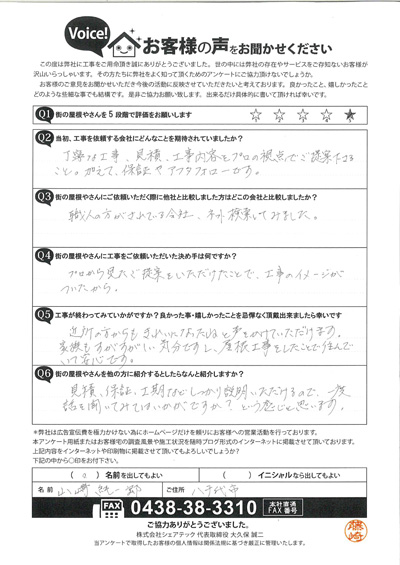 Voice!
お客様の声をお聞かせください
この度は弊社に工事をご用命頂き誠にありがとうございました。世の中には弊社の存在やサービスをご存知ないお客様が
沢山いらっしゃいます。その方たちに弊社をよく知って頂くためのアンケートにご協力頂けないでしょうか。
お客様のご意見をお聞かせいただき今後の活動に反映させていただきたいと考えております。良かったこと、嬉しかったこと
どのような些細な事でも結構です。是非ご協力お願い致します。出来るだけ具体的に書いて頂ければ幸いです。
Q1 街の屋根やさんを5段階で評価をお願いします ☆ ☆ ☆ ☆ ★
Q2 当初、工事を依頼する会社にどんなことを期待されていましたか?
丁寧な工事、見積、工事内容をプロの視点でご提案下さる
こと。加えて、保証やアフタフォローです。
Q3 街の屋根やさんにご依頼いただく際に他社と比較しました方はどこの会社と比較しましたか?
職人の方がされている会社、ネット検索してみました。
Q4 街の屋根やさんに工事をご依頼いただいた決め手は何ですか?
プロから見たご提案をいただけたことで、工事のイメージが
ついたから。
Q5 工事が終わってみていかがですか?良かった事・嬉しかったことを忌憚なく頂戴出来ましたら幸いです
近所の方からもきれいになったねと声をかけていただけます。
家族もすがすがしい気分ですし、屋根工事をしたことで住んで
いて安心です。
Q6 街の屋根やさんを他の方に紹介するとしたらなんと紹介しますか?
見積、保証、工期などしっかり説明いただけるので、一度
話を聞いてみてはいかがですか?という感じと思います。
※弊社は広告宣伝費を極力かけない為にホームページだけを頼りにお客様への営業活動を行っております。
本アンケート用紙またはお客様宅の調査風景や施工状況を随時ブログ形式のインターネットに掲載させて頂いております。
上記内容をインターネットや印刷物に掲載させて頂いてもよろしいでしょうか?
下記の中から〇印をお付下さい。
( 〇 )名前を出してもよい ( )イニシャルなら出してもよい
名前 山崎純一郎 ご住所 八千代市
FAX 0438-38-3310 本社直通 FAX番号
ご協力ありがとうございました。
株式会社シェアテック 代表取締役 大久保 誠二
当アンケートで取得したお客様の個人情報は関係法規に基づき厳正に管理いたします。
藤崎